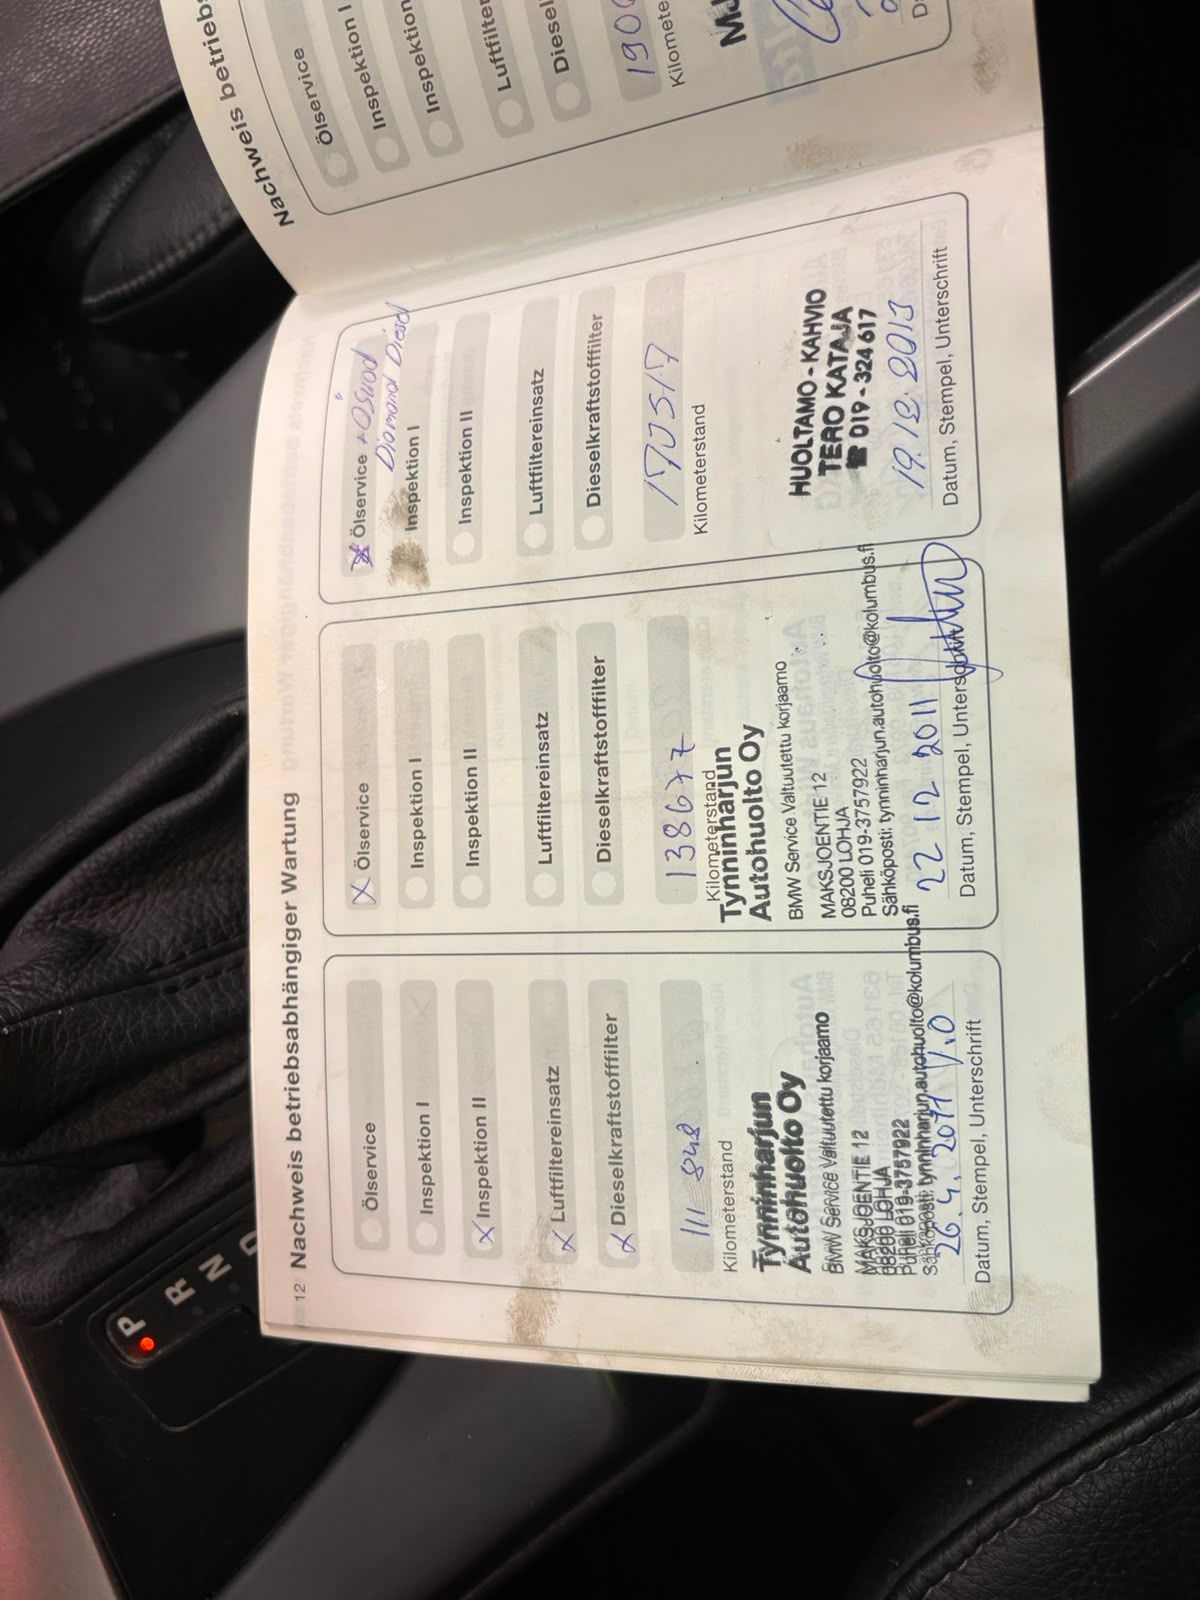 12 Nachweis betriebsabhängiger Wartung
Ölservice
Inspektion I
X Inspektion II
X Luftfiltereinsatz
X Dieselkraftstofffilter
111 848
Kilometerstand
Tynninharjun
Autohuolto Oy
BMW Service Valtuutettu korjaamo
MAKSJOENTIE 12
08200 LOHJA
Puheli 019-3757922
Sähköposti: tynninharjun.autohuolto@kolumbus.fi
26.4.2011
Datum, Stempel, Unterschrift
X Ölservice
Inspektion I
Inspektion II
Luftfiltereinsatz
Dieselkraftstofffilter
138677
Kilometerstand
Tynninharjun
Autohuolto Oy
BMW Service Valtuutettu korjaamo
MAKSJOENTIE 12
08200 LOHJA
Puheli 019-3757922
Sähköposti: tynninharjun.autohuolto@kolumbus.fi
22 12 2011
Datum, Stempel, Unterschrift
X Ölservice +
Diamond Diesel
Inspektion I
Inspektion II
Luftfiltereinsatz
Dieselkraftstofffilter
Kilometerstand
HUOLTAMO - KAHVIO
TERO KATAJA
☎ 019 - 324 617
19.12.2013
Datum, Stempel, Unterschrift
Nachweis betriebs
Ölservice
Inspektion I
Inspektion
Luftfilter
Diesel
190
Kilomete
MJ
P
R
N